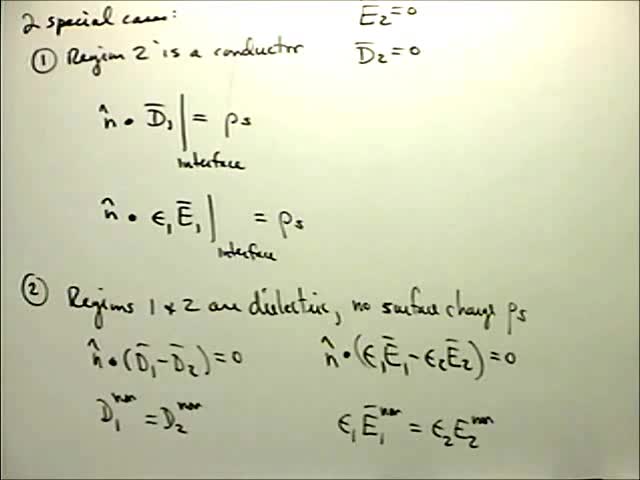 2 special cases:
E̅₂=0
① Region 2 is a conductor
D̅₂=0
n̂ • D̅₁| = ρs
interface
n̂ • ϵ₁E̅₁| = ρs
interface
② Regions 1 & 2 are dielectric, no surface charge ρs
n̂•(D̅₁-D̅₂)=0
n̂•(ϵ₁E̅₁-ϵ₂E̅₂)=0
D₁ⁿᵒʳ = D₂ⁿᵒʳ
ϵ₁E̅₁ⁿᵒʳ = ϵ₂E₂ⁿᵒʳ